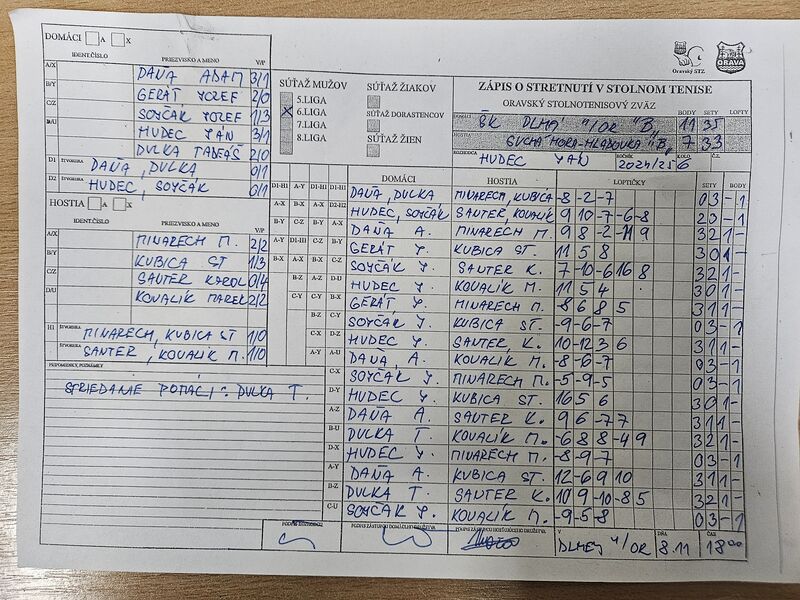 DOMÁCI A X
IDENT.ČÍSLO PRIEZVISKO A MENO V/P
A/X DAŇA ADAM 3/1
B/Y GERÁT JOZEF 2/0
C/Z SOYČÁK JOZEF 1/3
D/U HUDEC JÁN 3/1
DULKA TADEÁŠ 2/0
D1 ŠTVORHRA DAŇA, DULKA 0/1
D2 ŠTVORHRA HUDEC, SOYČÁK 0/1
HOSTIA A X
IDENT.ČÍSLO PRIEZVISKO A MENO V/P
A/X MINARECH M. 2/2
B/Y KUBICA ST 1/3
C/Z SAUTER KAROL 0/4
D/U KOVALÍK MAREK 2/2
H1 ŠTVORHRA MINARECH, KUBICA ST 1/0
ŠTVORHRA SAUTER, KOVALÍK M. 1/0
PRIPOMIENKY, POZNÁMKY
STRIEDANIE DOMÁCI: DULKA T.
SÚŤAŽ MUŽOV
5.LIGA
X 6.LIGA
7.LIGA
8.LIGA
SÚŤAŽ ŽIAKOV
SÚŤAŽ DORASTENCOV
SÚŤAŽ ŽIEN
Oravský STZ
ORAVA
ZÁPIS O STRETNUTÍ V STOLNOM TENISE
ORAVSKÝ STOLNOTENISOVÝ ZVÄZ
BODY SETY LOPTY
DOMÁCI ŠK DLHÁ "/OR "B" 11 35
HOSTIA SUCHÁ HORA-HLADOVKA "B" 7 33
ROZHODCA HUDEC JÁN ROČNÍK 2024/25 KOLO 6 Č.Z.
DOMÁCI HOSTIA LOPTIČKY SETY BODY
DAŇA, DULKA MINARECH, KUBICA -8 -2 -7 0 3 - 1
HUDEC, SOYČÁK SAUTER, KOVALÍK 9 10 -7 -6 -8 2 3 - 1
DAŇA A. MINARECH M. 9 8 -2 -11 9 3 2 1 -
GERÁT J. KUBICA ST. 11 5 8 3 0 1 -
SOYČÁK J. SAUTER K. -7 -10 -6 16 8 3 2 1 -
HUDEC J. KOVALÍK M. 11 5 4 3 0 1 -
GERÁT J. MINARECH M. -8 6 8 5 3 1 1 -
SOYČÁK J. KUBICA ST. -9 -6 -7 0 3 - 1
HUDEC J. SAUTER K. 10 -12 3 6 3 1 1 -
DAŇA, A. KOVALÍK M. -8 -6 -7 0 3 - 1
SOYČÁK J. MINARECH M. -5 -9 -5 0 3 - 1
HUDEC J. KUBICA ST. 16 5 6 3 0 1 -
DAŇA A. SAUTER K. 9 6 -7 7 3 1 1 -
DULKA T. KOVALÍK M. -6 8 8 -4 9 3 2 1 -
HUDEC J. MINARECH M. -8 -9 -7 0 3 - 1
DAŇA A. KUBICA ST. 12 -6 9 10 3 1 1 -
DULKA T. SAUTER K. 10 9 -10 -8 5 3 2 1 -
SOYČÁK J. KOVALÍK M. -9 -5 -8 0 3 - 1
PODPIS ROZHODCU
PODPIS ZÁSTUPCU DOMÁCEHO DRUŽSTVA
PODPIS ZÁSTUPCU HOSŤUJÚCEHO DRUŽSTVA
V DLHEJ "/OR DŇA 8.11 ČAS 18 00